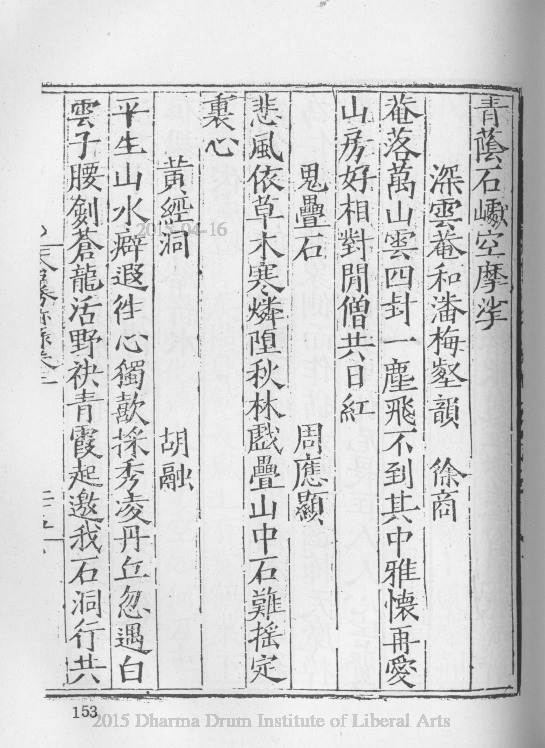 青蔭石巘空摩挲
深雲菴和潘梅壑韻 徐商
菴落萬山雲四封一塵飛不到其中雅懷再愛
山房好相對閒僧共日紅
鬼疊石 周應顯
悲風依草木寒燐墮秋林戲疊山中石難搖定
裏心
黃經洞 胡融
平生山水癖遐徃心獨歆採秀凌丹丘忽遇白
雲子腰劍蒼龍活野袂青霞起邀我石洞行共
2015-04-16
153
2015 Dharma Drum Institute of Liberal Arts